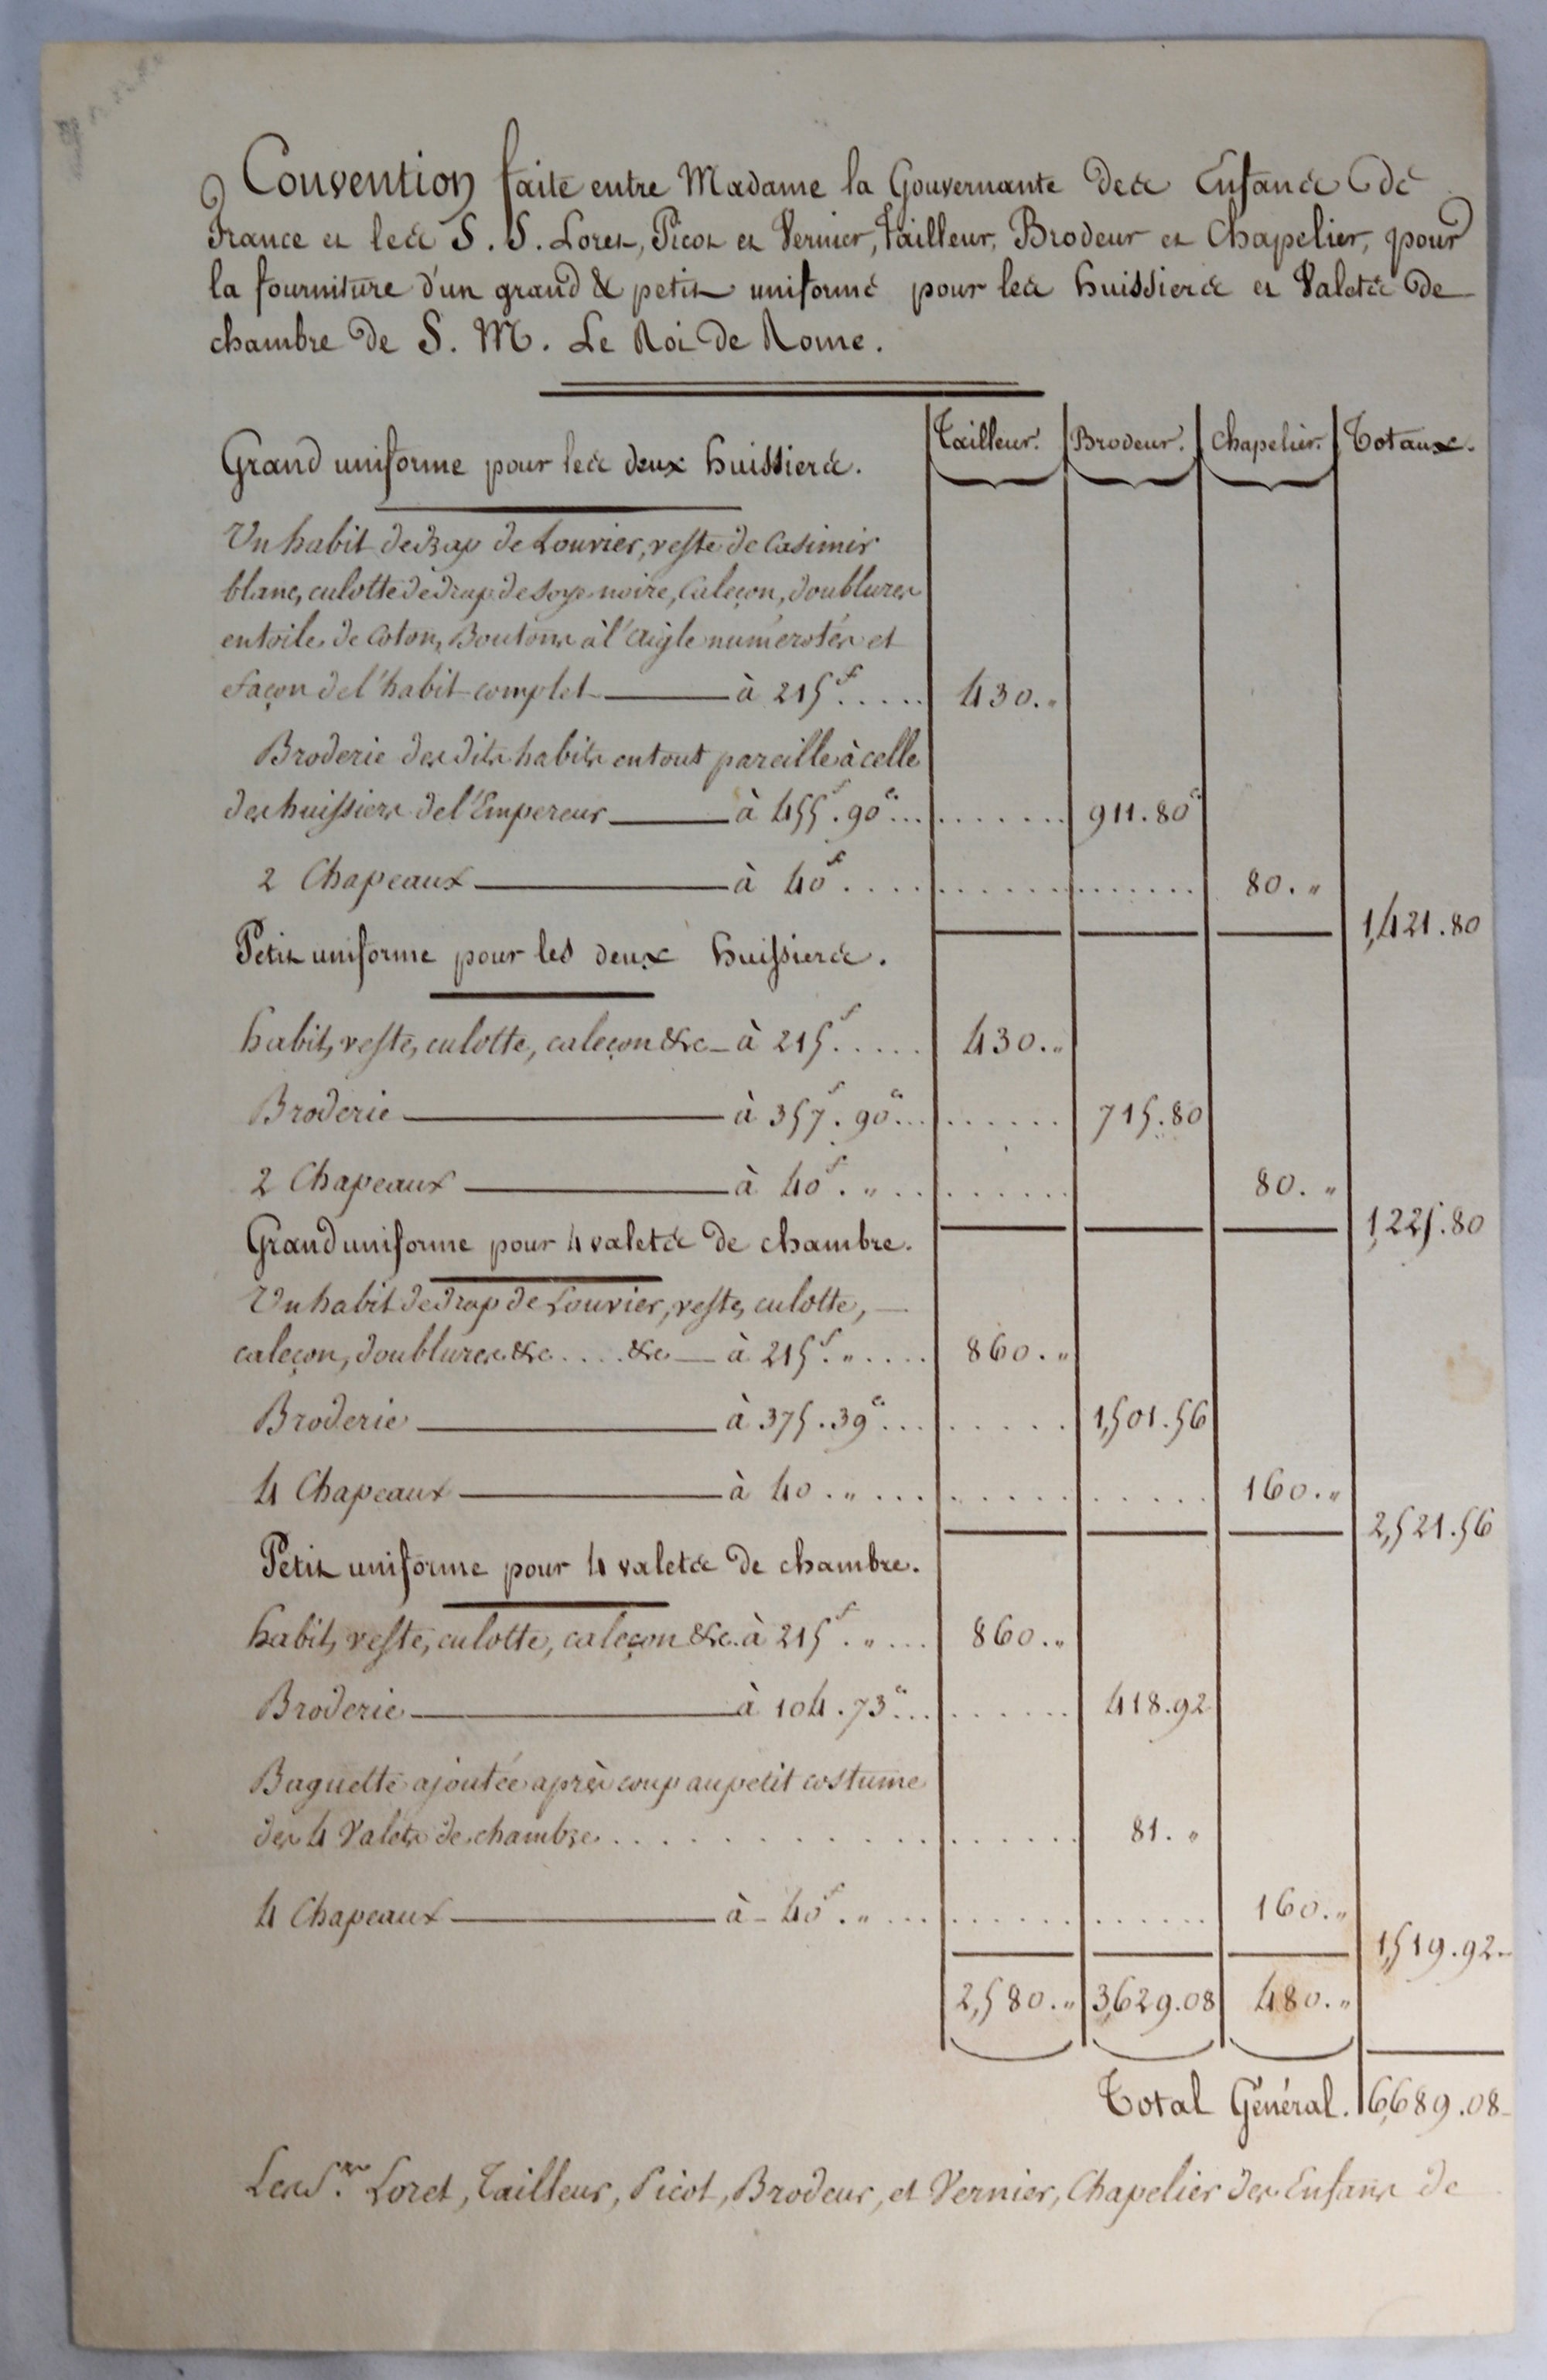 Convention faite entre Madame la Gouvernante des Enfans de
France et les S. S. Loret, Picot et Vernier, Tailleur, Brodeur et Chapelier, pour
la fourniture d'un grand & petit uniforme pour les huissiers et Valets de
chambre de S. M. Le Roi de Rome.
Tailleur. Brodeur. Chapelier. Totaux.
Grand uniforme pour les deux huissiers.
Un habit de drap de Louvier, veste de Casimir
blanc, culotte de drap de soye noire, Caleçon, doublures
en toile de Coton, Boutons à l'aigle numérotés et
façon de l'habit complet à 215f..... 430.„
Broderie des dits habits en tout pareille à celle
des huissiers de l'Empereur à 455f.90c.......... 911.80c
2 Chapeaux à 40f................. 80.„
1,421.80
Petit uniforme pour les deux huissiers.
habit, veste, culotte, caleçon &c à 215f..... 430.„
Broderie à 357f.90c......... 715.80
2 Chapeaux à 40f.„........ 80.„
1,225.80
Grand uniforme pour 4 valets de chambre.
Un habit de drap de Louvier, veste, culotte,
caleçon, doublures &c....&c à 215f.„.... 860.„
Broderie à 375.39c........ 1,501.56
4 Chapeaux à 40.„............. 160.„
2,521.56
Petit uniforme pour 4 valets de chambre.
habit, veste, culotte, caleçon &c. à 215f.„... 860.„
Broderie à 104.73c......... 418.92
Baguette ajoutée après coup au petit costume
des 4 Valets de chambre................ 81.„
4 Chapeaux à 40f.„............... 160.„
1,519.92
2,580.„ 3,629.08 480.„
Total Général. 6,689.08
Les Srs. Loret, Tailleur, Picot, Brodeur, et Vernier, Chapelier des Enfans de